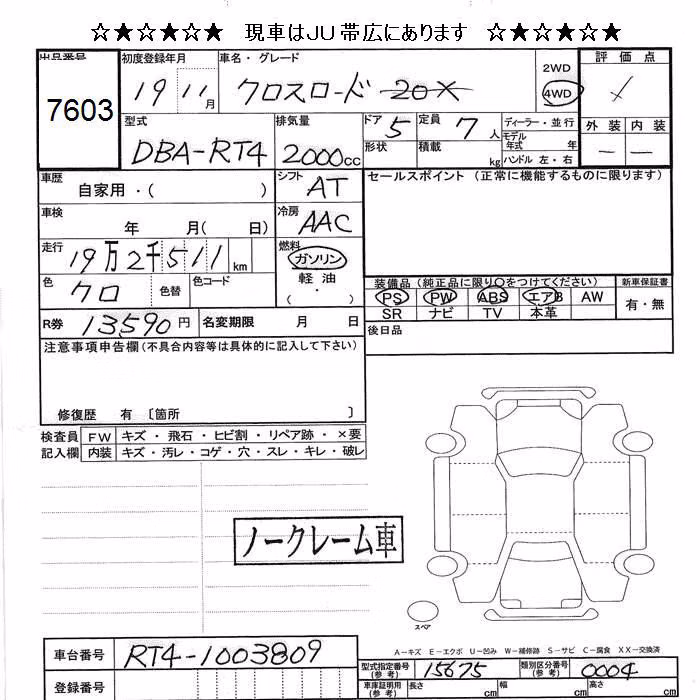 ☆★☆★☆★☆ 現車はJU帯広にあります ☆★☆★☆★☆
出品番号 7603
初度登録年月 19 11月
車名・グレード クロスロード 20X
2WD
4WD
評価点
外装 内装
— —
型式 DBA-RT4
排気量 2000cc
ドア 5
形状
定員 7人
積載 kg
ディーラー・並行
モデル年式 年
ハンドル 左・右
車歴 自家用・( )
シフト AT
セールスポイント (正常に機能するものに限ります)
車検 年 月( 日)
冷房 AAC
走行 19万2千511km
燃料 ガソリン
軽油
( ・ )
色 クロ 色替 色コード
装備品 (純正品に限り○をつけてください)
新車保証書
PS PW ABS エアB AW
有・無
SR ナビ TV 本革
R券 13590円 名変期限 月 日
後日品
注意事項申告欄(不具合内容等は具体的に記入して下さい)
修復歴 有 〔箇所 〕
検査員記入欄
FW キズ・飛石・ヒビ割・リペア跡・×要
内装 キズ・汚レ・コゲ・穴・スレ・キレ・破レ
ノークレーム車
スペア
A-キズ E-エクボ U-凹み W-補修跡 S-サビ C-腐食 XX-交換済
車台番号 RT4-1003809
型式指定番号(参考) 15675
類別区分番号(参考) 0004
登録番号
車庫証明用(参考) 長さ cm 幅 cm 高さ cm